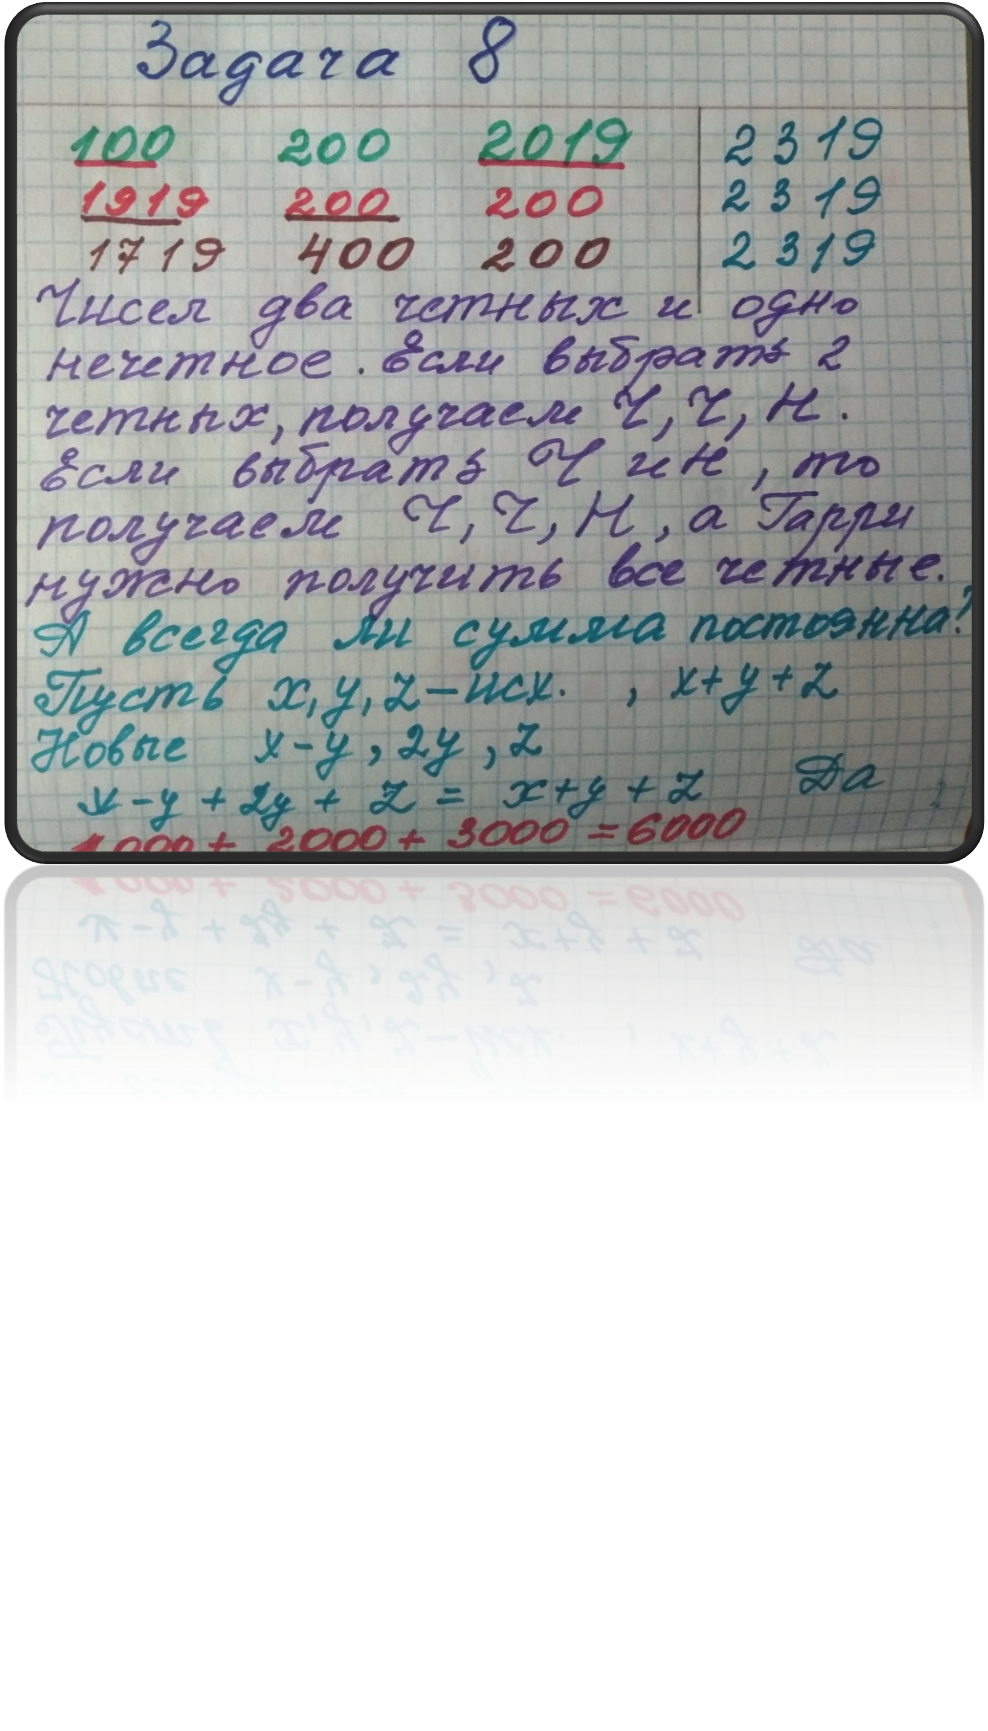 Задача 8
100 200 2019 2319
1919 200 200 2319
1719 400 200 2319
Чисел два четных и одно
нечетное. Если выбрать 2
четных, получаем Ч, Ч, Н.
Если выбрать Ч и Н, то
получаем Ч, Ч, Н, а Гарри
нужно получить все четные.
А всегда ли сумма постоянна?
Пусть x, y, z – исх. , x+y+z
Новые x-y, 2y, z
x-y+2y+z = x+y+z Да
1000+ 2000+ 3000=6000